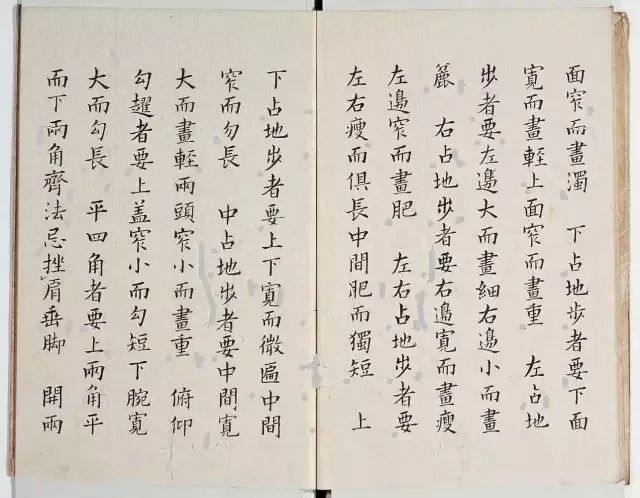 面窄而畫濁　下占地步者要下面
寬而畫輕上面窄而畫重　左占地
步者要左邊大而畫細右邊小而畫
麄　右占地步者要右邊寬而畫瘦
左邊窄而畫肥　左右占地步者要
左右瘦而俱長中間肥而獨短　上
下占地步者要上下寬而微匾中間
窄而勿長　中占地步者要中間寬
大而畫輕兩頭窄小而畫重　俯仰
勾趯者要上盖窄小而勾短下腕寬
大而勾長　平四角者要上兩角平
而下兩角齊法忌挫眉垂脚　開兩